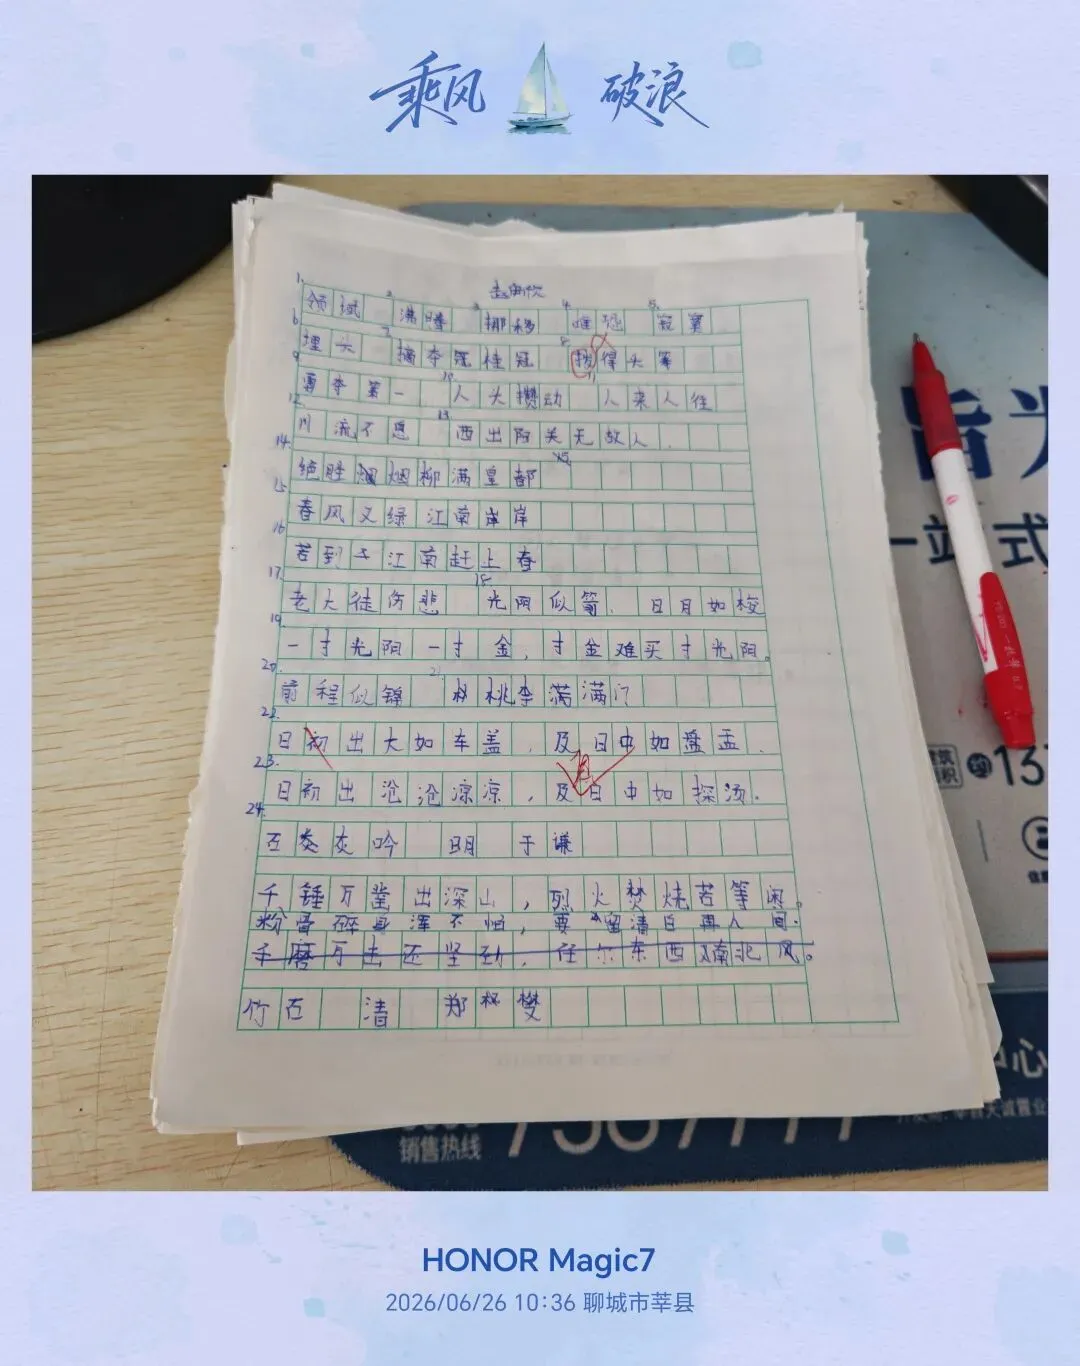 乘风 破浪
1. 2. 3. 4. 5.
领域 沸腾 挪移 难 寂寞
6. 7. 8.
埋头 摘夺冠桂冠 拔得头筹
9. 10. 11.
勇夺第一 人头攒动 人来人往
12. 13.
川流不息 西出阳关无故人.
14.
绝胜烟柳满皇都
15.
春风又绿江南岸
16.
若到江南赶上春
17. 18.
老大徒伤悲 光阴似箭. 日月如梭
19.
一寸光阳一寸金,寸金难买寸光阳。
20. 21.
前程似锦 桃李满满门
22.
日初出大如车盖,及日中如盘盂.
23.
日初出沧沧凉凉,及日中如探汤.
24.
石灰吟 明 于谦
千锤万凿出深山,烈火焚烧若等闲。
粉骨碎身浑不怕,要留清白再人间.
千磨万击还坚劲,任尔东西南北风。
竹石 清 郑
旨光
一站式
建筑面积 约13
销售热线
中心
HONOR Magic7
2026/06/26 10:36 聊城市莘县